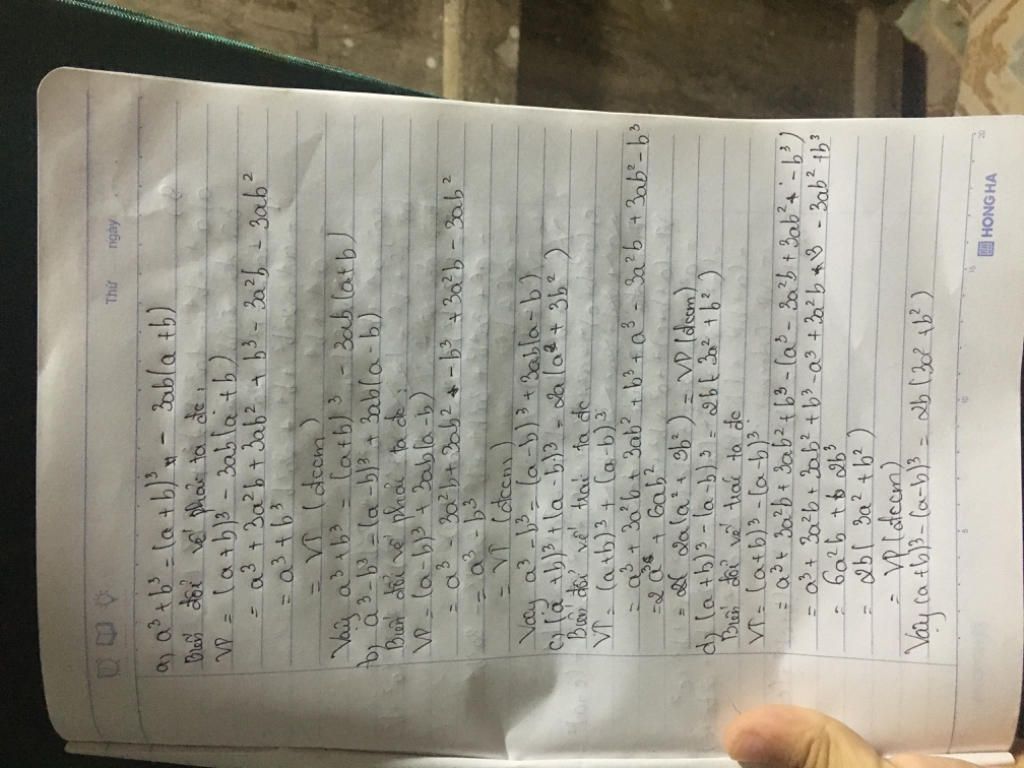 Thứ
ngày
a) a³ + b³ = (a + b)³ - 3ab(a + b)
Biến đổi vế phải ta đc:
VP = (a + b)³ - 3ab(a + b)
= a³ + 3a²b + 3ab² + b³ - 3a²b - 3ab²
= a³ + b³
= VT (đccm)
Vậy a³ + b³ = (a + b)³ - 3ab(a+b)
b) a³ - b³ = (a - b)³ + 3ab(a - b)
Biến đổi vế phải ta đc:
VP = (a - b)³ + 3ab(a - b)
= a³ - 3a²b + 3ab² - b³ + 3a²b - 3ab²
= a³ - b³
= VT (đccm)
Vậy a³ - b³ = (a - b)³ + 3ab(a - b)
c) (a + b)³ + (a - b)³ = 2a (a² + 3b²)
Biến đổi vế thái ta đc
VT = (a + b)³ + (a - b)³
= a³ + 3a²b + 3ab² + b³ + a³ - 3a²b + 3ab² - b³
= 2a³ + 6ab²
= 2a(a² + 3b²) = VP (đccm)
d) (a + b)³ - (a - b)³ = 2b(3a² + b²)
Biến đổi vế thái ta đc
VT = (a + b)³ - (a - b)³
= a³ + 3a²b + 3ab² + b³ - (a³ - 3a²b + 3ab² - b³)
= a³ + 3a²b + 3ab² + b³ - a³ + 3a²b - 3ab² + b³
= 6a²b + 2b³
= 2b(3a² + b²)
= VP (đccm)
Vậy (a + b)³ - (a - b)³ = 2b(3a² + b²)
5 10 15 20
HONG HA